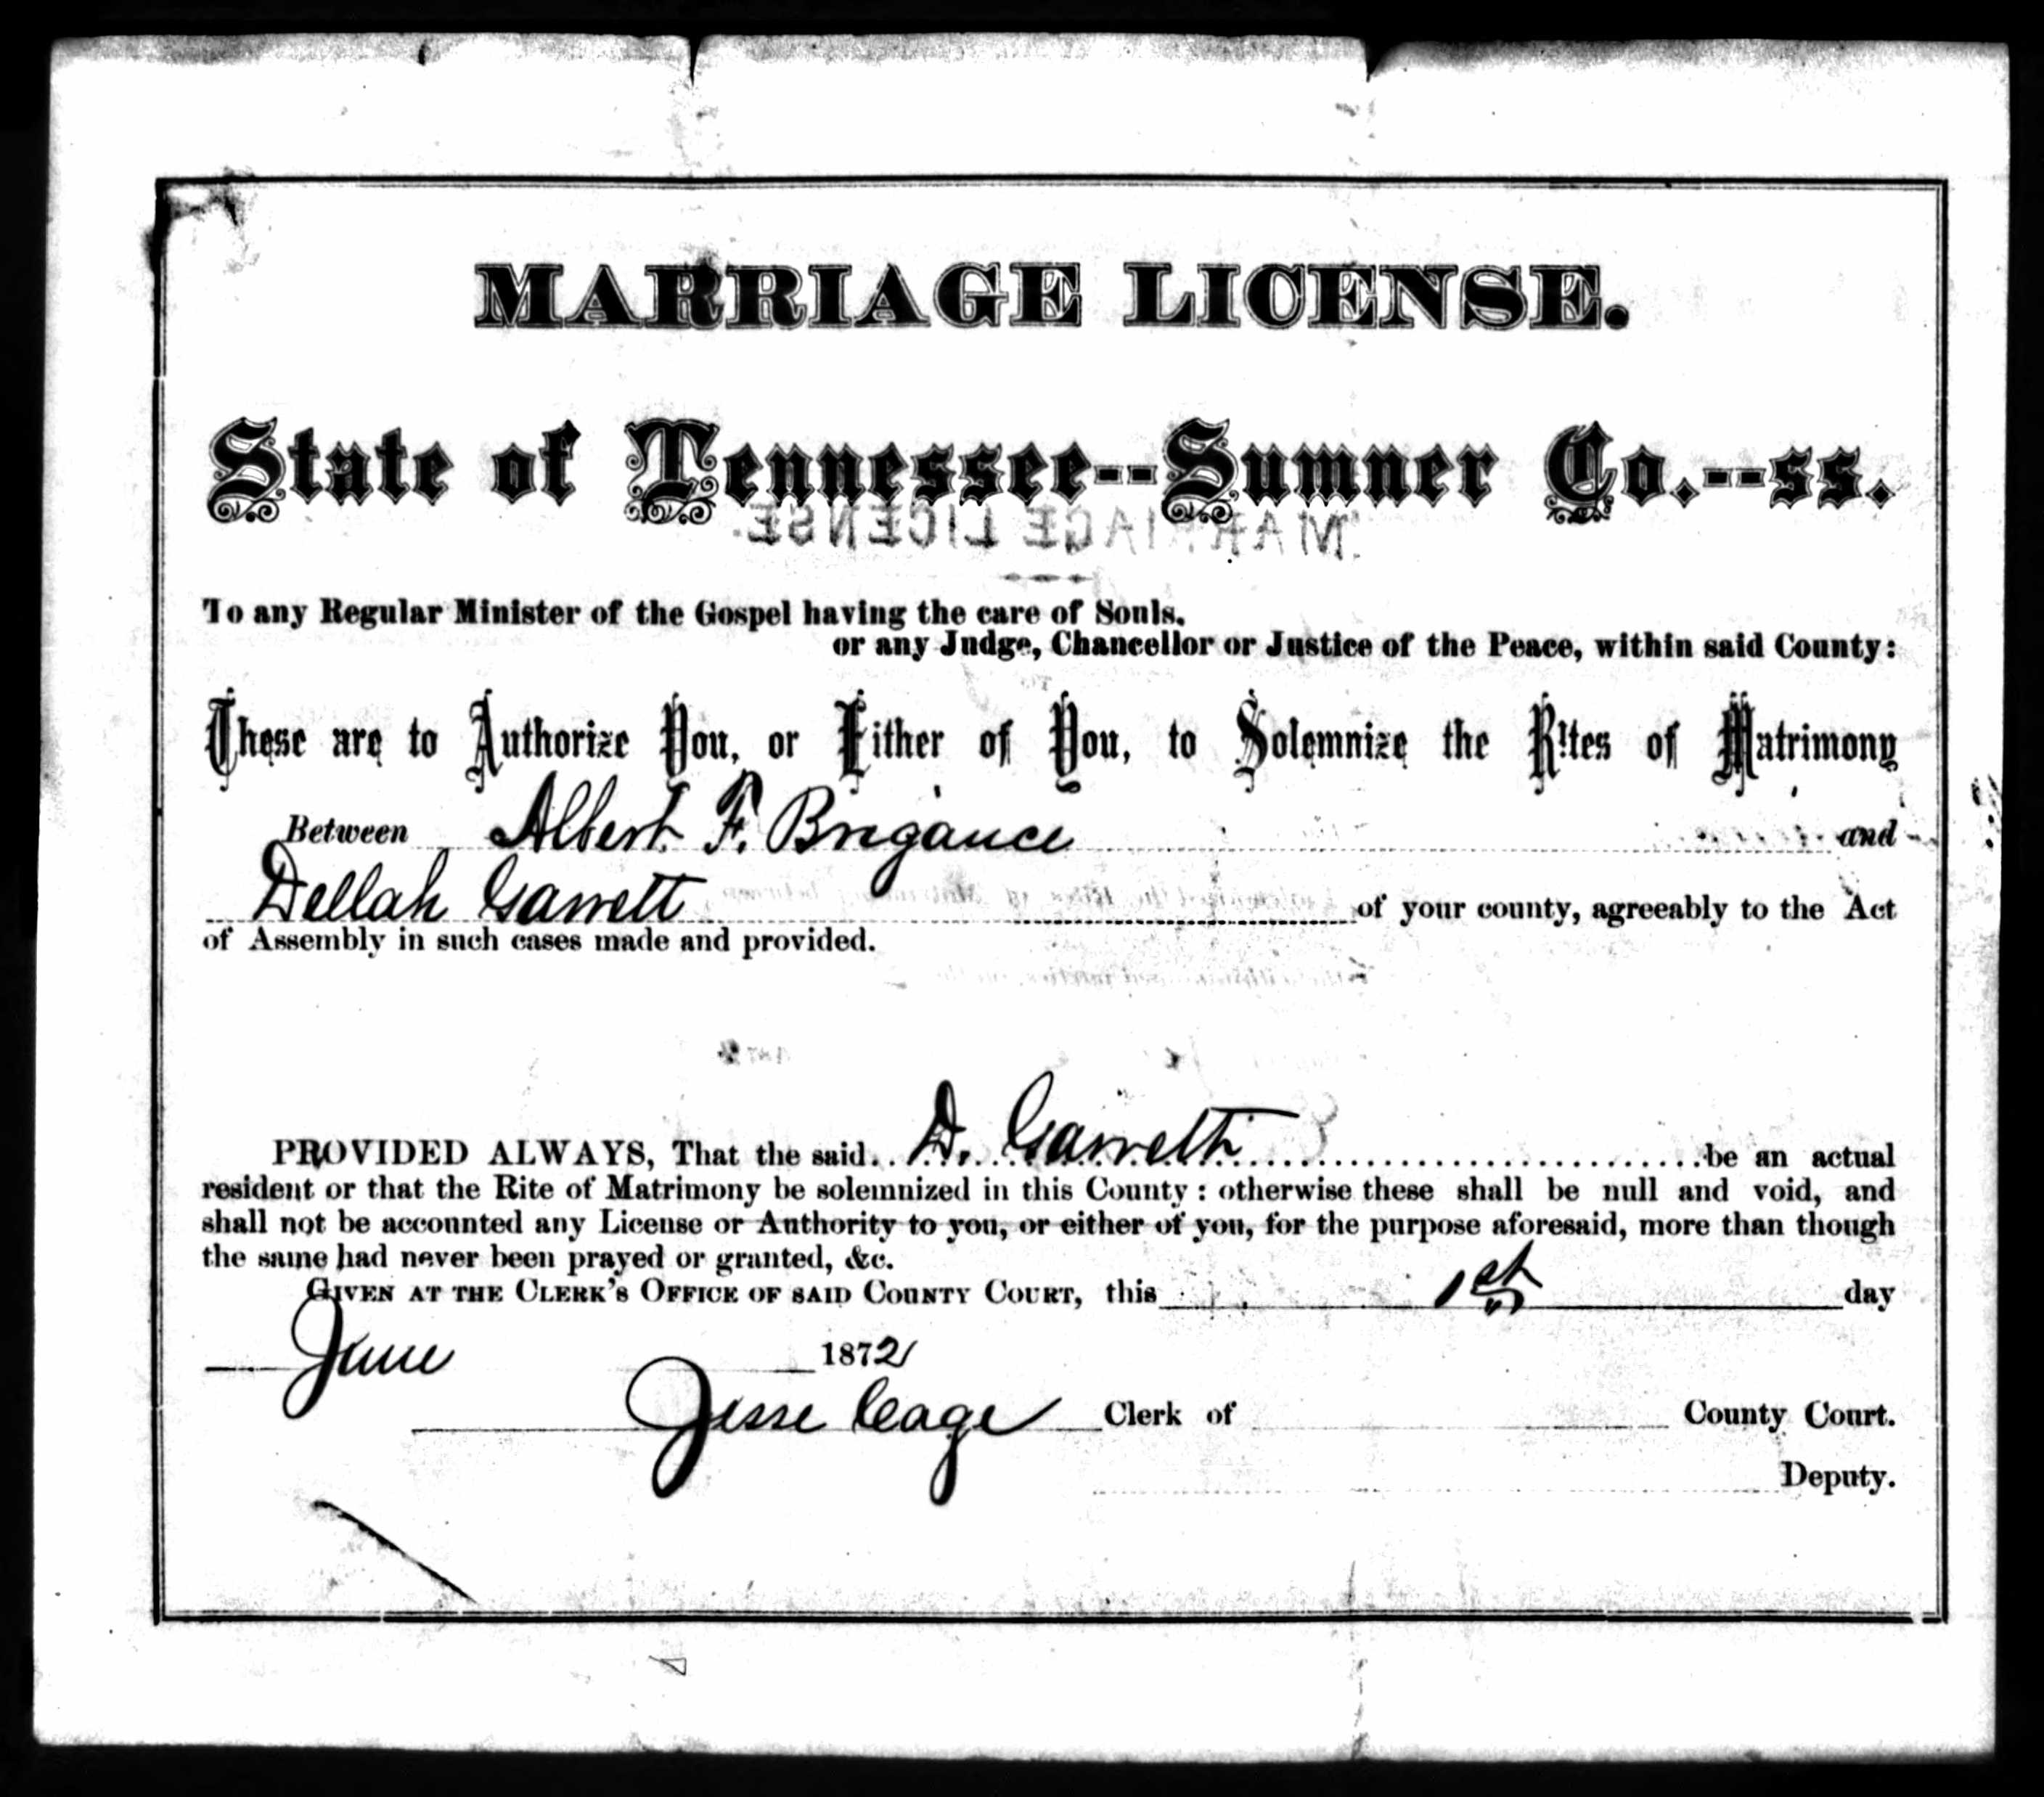 MARRIAGE LICENSE.
State of Tennessee--Sumner Co.--ss.
MARRIAGE LICENSE.
To any Regular Minister of the Gospel having the care of Souls,
or any Judge, Chancellor or Justice of the Peace, within said County:
These are to Authorize You, or Either of You, to Solemnize the Rites of Matrimony
Between Albert F. Brigance and
Dellah Garrett of your county, agreeably to the Act
of Assembly in such cases made and provided.
PROVIDED ALWAYS, That the said D. Garrett be an actual
resident or that the Rite of Matrimony be solemnized in this County: otherwise these shall be null and void, and
shall not be accounted any License or Authority to you, or either of you, for the purpose aforesaid, more than though
the same had never been prayed or granted, &c.
GIVEN AT THE CLERK'S OFFICE OF SAID COUNTY COURT, this 1st day
June 1872
Jesse Cage Clerk of County Court.
Deputy.